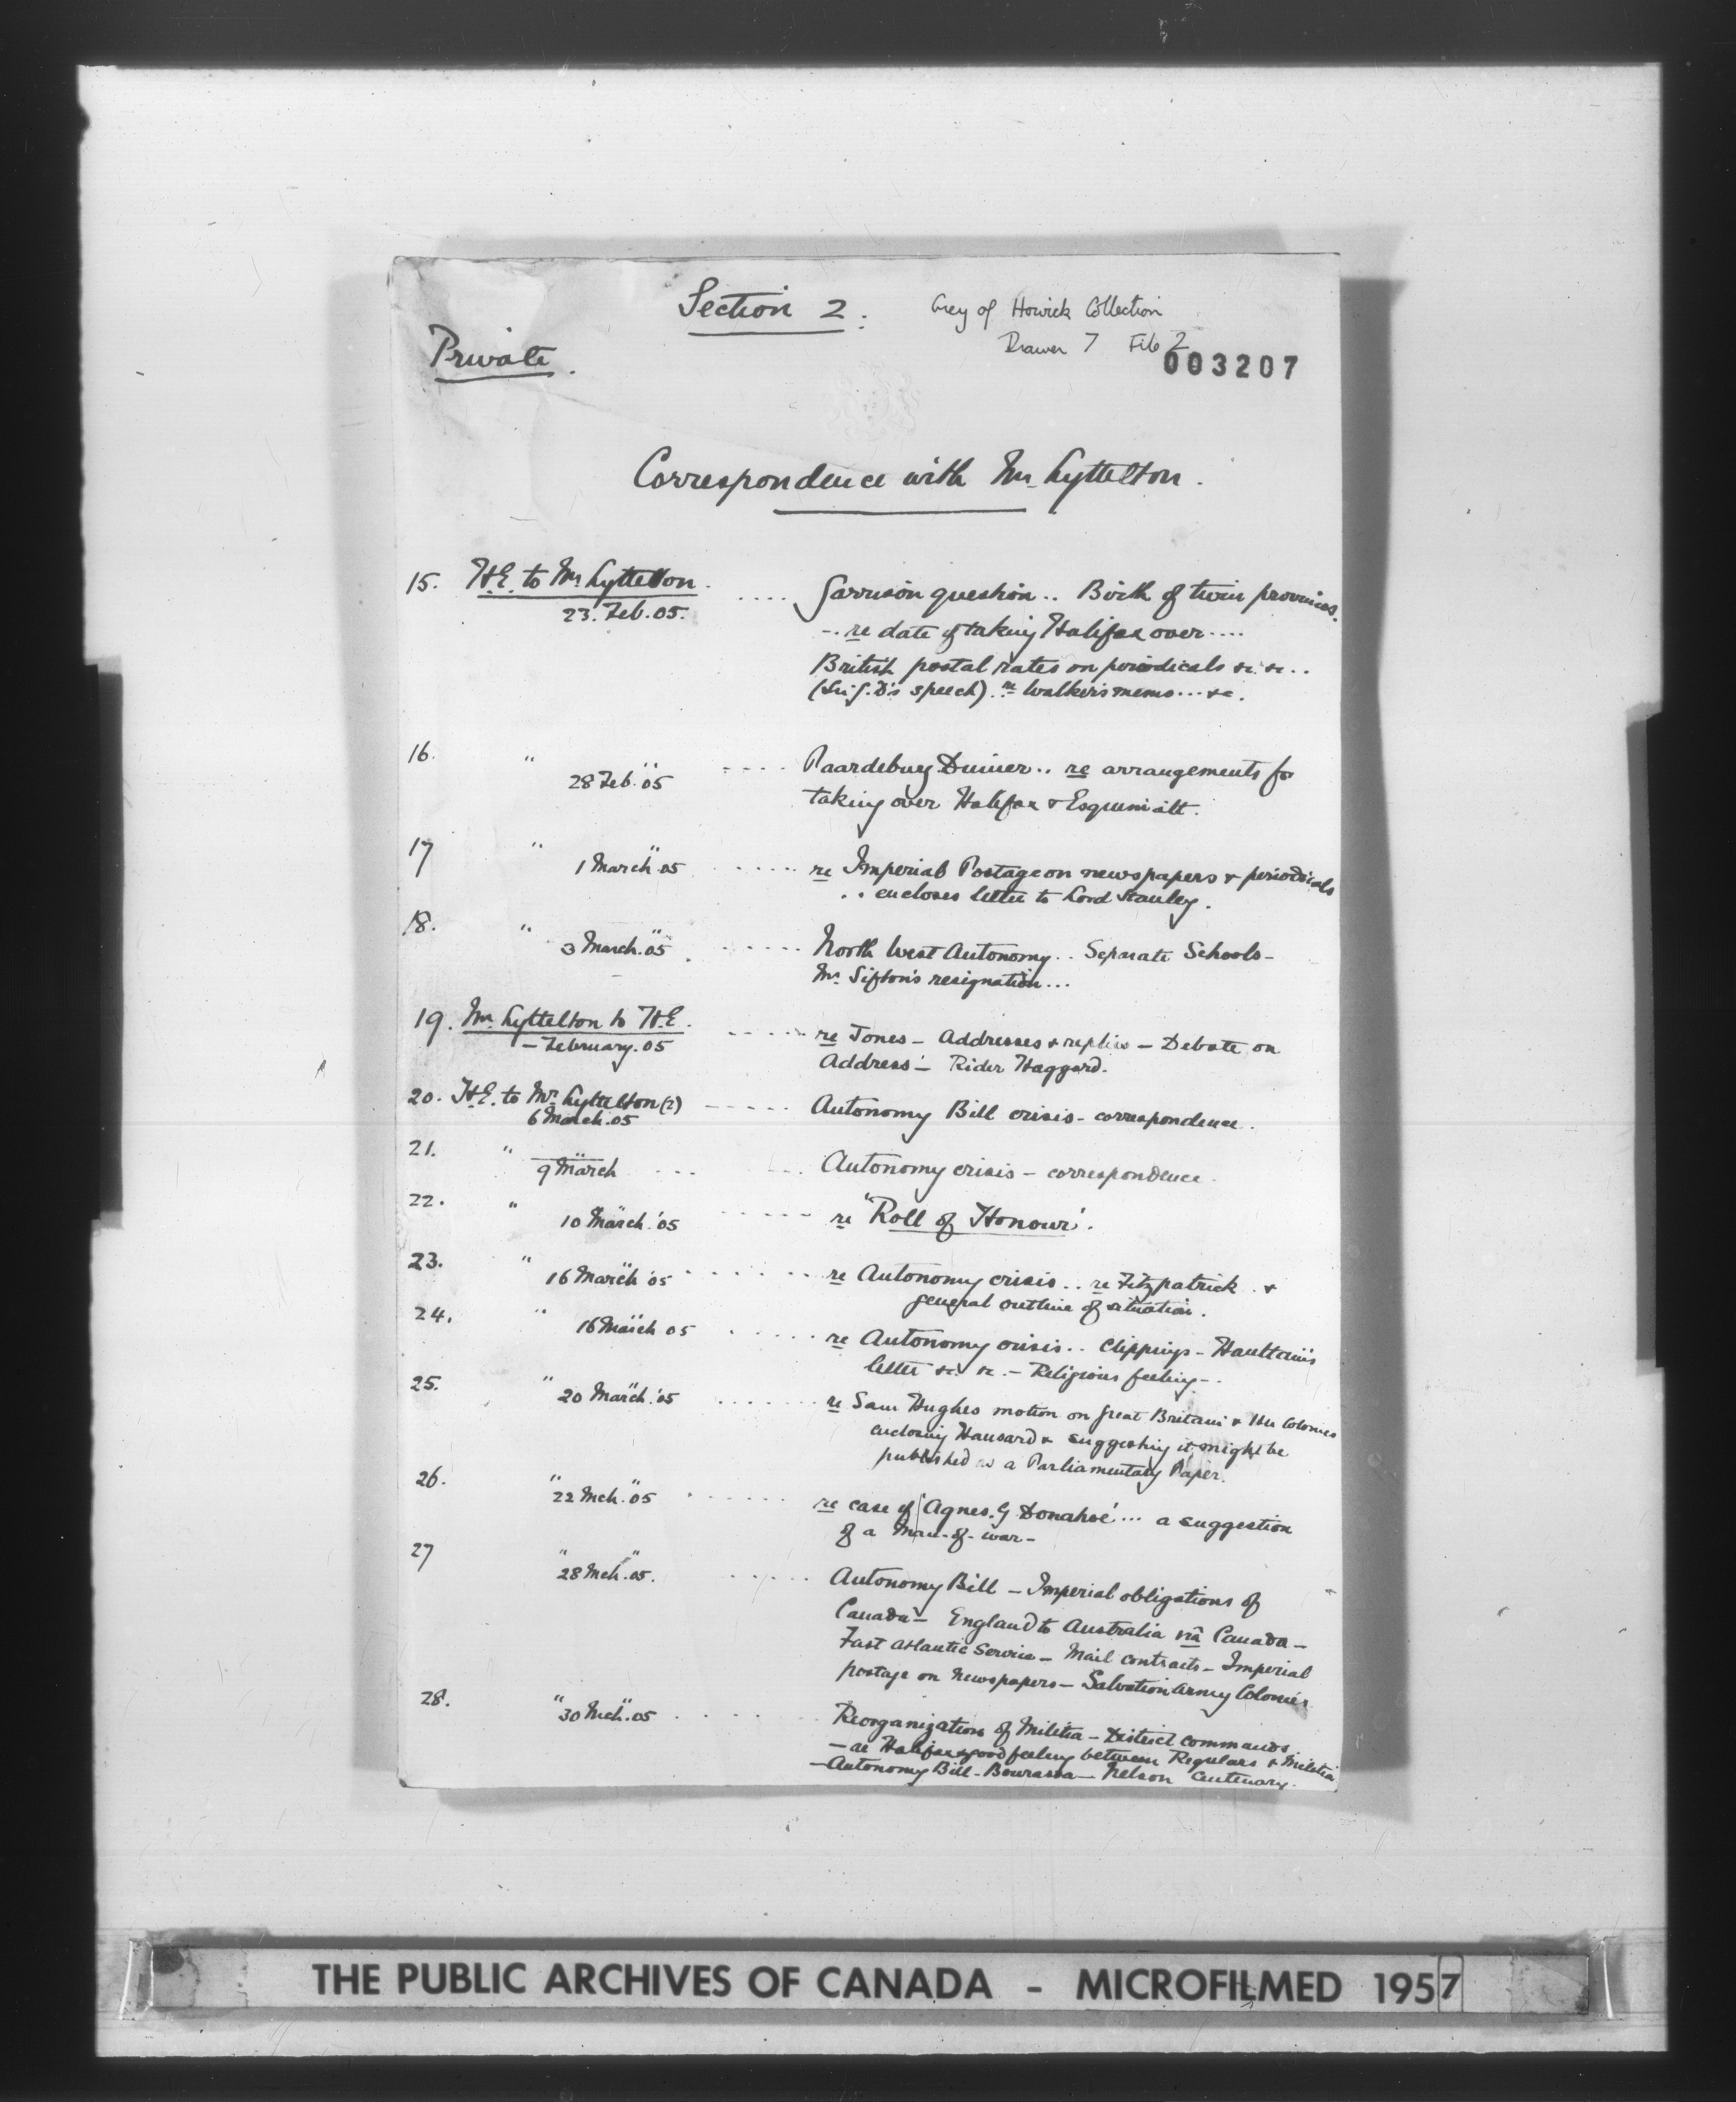 Section 2.
Grey of Howick Collection
Drawer 7 File 2
Private.
003207
Correspondence with Mr. Lyttelton.
15. H.E. to Mr. Lyttelton. .... Garrison question.. Birth of twin provinces.
23. Feb. 05. -. re date of taking Halifax over....
British postal rates on periodicals &c. &c...
( speech). re Walker's memo... &c.
16. " " .... Paardeburg Dinner.. re arrangements for
28 Feb. 05 taking over Halifax & Esquimalt.
17 " " ..... re Imperial Postage on newspapers & periodicals
1 March. 05 .. encloses letter to Lord Stanley.
18. " " ..... North West Autonomy.. Separate Schools-
3 March. 05. Mr. Sifton's resignation...
19. Mr. Lyttelton to H.E. ..... re Jones - Addresses & replies - Debate on
- February. 05 Address - Rider Haggard.
20. H.E. to Mr. Lyttelton (2) ..... Autonomy Bill crisis - correspondence.
6 March. 05
21. " " ... ... Autonomy crisis - correspondence.
9 March
22. " " ..... re "Roll of Honour'.
10 March. '05
23. " " ...... re Autonomy crisis.. re Fitzpatrick &
16 March '05 general outline of situation.
24. " " ..... re Autonomy crisis.. Clippings - Haultain's
16 March 05 letter &c. &c. - Religious feeling -.
25. " " ...... re Sam Hughes motion on Great Britain & Her Colonies
20 March. '05 enclosing Hansard & suggesting it might be
published as a Parliamentary Paper.
26. " " ...... re case of 'Agnes. G Donahoe'... a suggestion
22 Mch. 05 of a Man-of-war-
27 " " ..... Autonomy Bill - Imperial obligations of
28 Mch. 05. Canada - England to Australia via Canada -
Fast Atlantic Service - Mail contracts - Imperial
postage on newspapers - Salvation Army Colonies
28. " " ..... Reorganization of Militia - District commands
30 Mch. 05 - re Halifax & good feeling between Regulars & Militia
- Autonomy Bill - Bourassa - Nelson Centenary.
THE PUBLIC ARCHIVES OF CANADA - MICROFILMED 1957